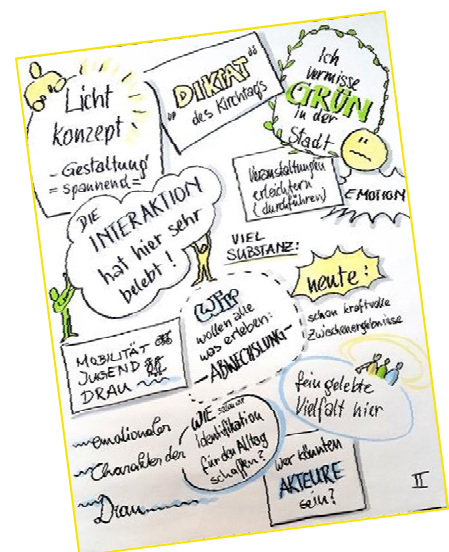 Licht
Konzept
- Gestaltung
= spannend =
"DIKTAT"
des Kirchtags
Ich
vermisse
GRÜN
in der
Stadt
Veranstaltungen
erleichtern
(durchführen)
EMOTION
DIE
INTERAKTION
hat hier sehr
belebt!
VIEL
SUBSTANZ!
heute:
schon kraftvolle
Zwischenergebnisse
WIR
wollen alle
was erleben:
- ABWECHSLUNG -
MOBILITÄT
JUGEND
DRAU
fein gelebte
Vielfalt hier
emotionaler
Charakter der
Drau
WIE sollen wir
Identifikation
für den Alltag
schaffen?
Wer könnten
AKTEURE
sein?
II